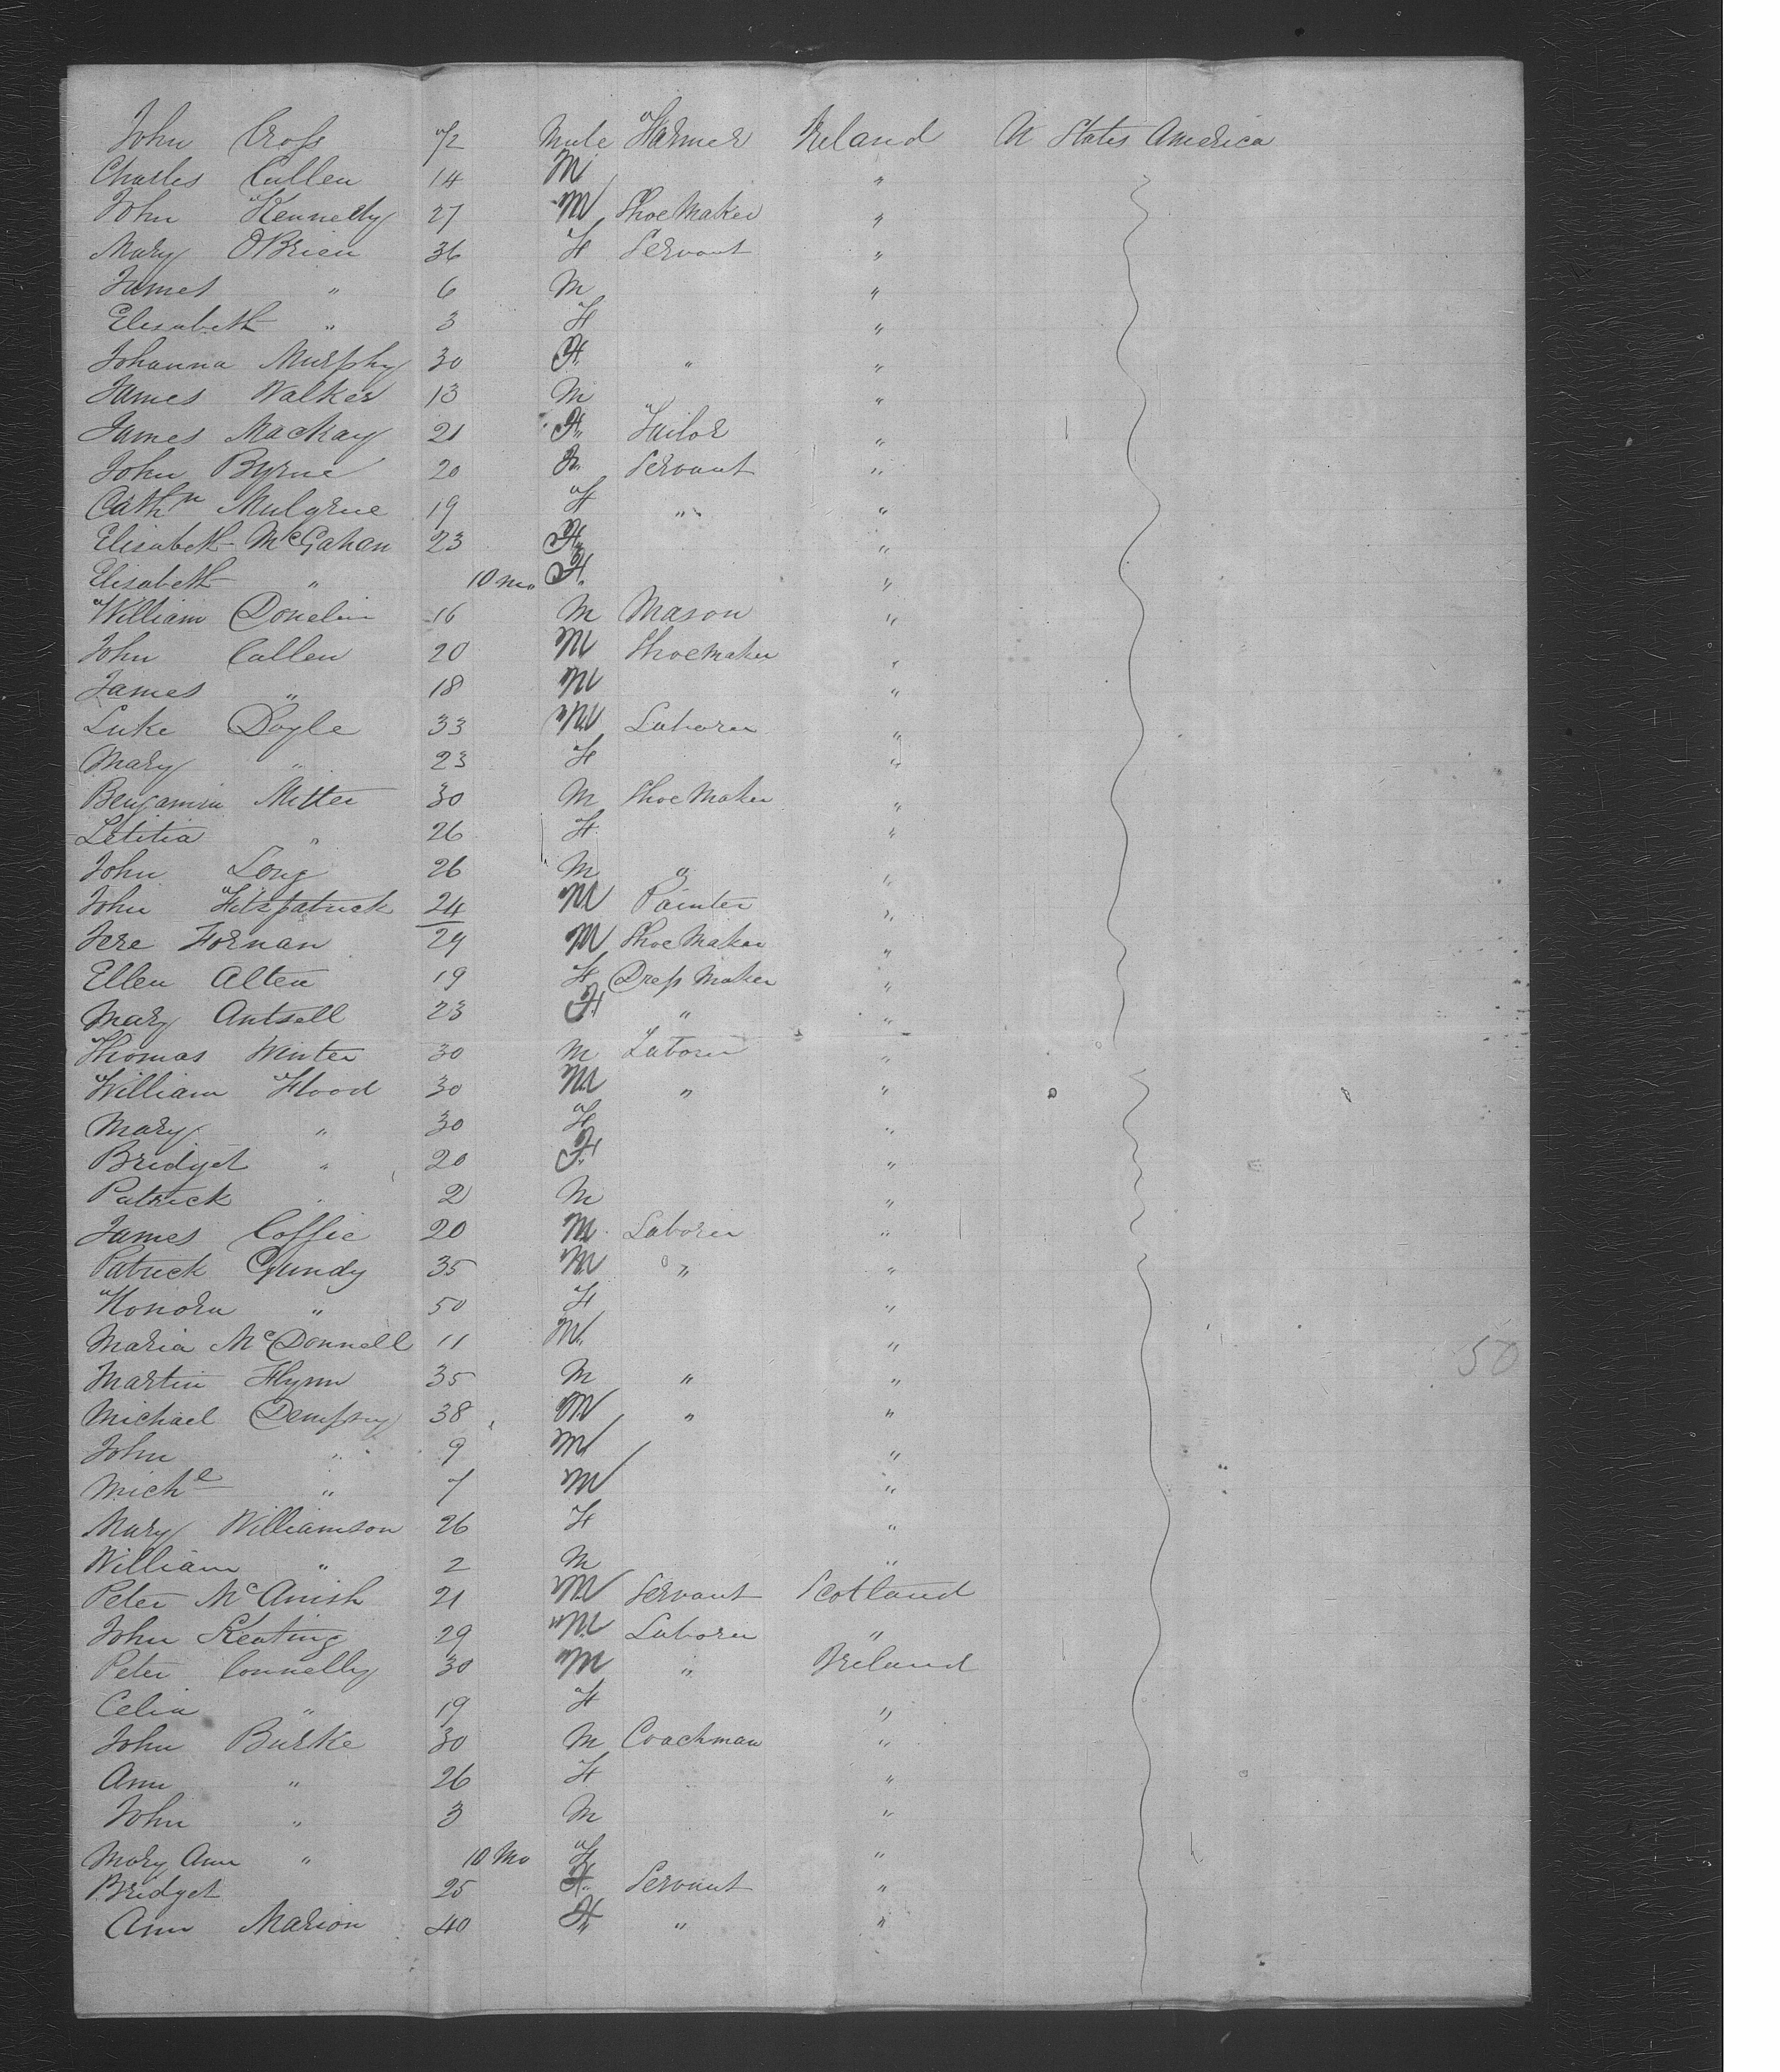 John Cross 72 Male Farmer Ireland U States America
Charles Cullen 14 M "
John Kennedy 27 M Shoe Maker "
Mary OBrien 36 F Servant "
James " 6 M "
Elisabeth " 3 F "
Johanna Murphy 30 F " "
James Walker 13 M "
James Mackay 21 F Tailor "
John Byrne 20 Servant "
Cathn Mulgrue 19 F " "
Elisabeth McGahan 23 F "
Elisabeth " 10 mo F "
William Donelin 16 M Mason "
John Cullen 20 M Shoemaker "
James " 18 M "
Luke Doyle 33 M Laborer "
Mary " 23 F "
Benjamin Mitter 30 M Shoe Maker "
Letitia " 26 F "
John Long 26 M " "
John Fitzpatrick 24 M Painter "
Jere Fornan 29 M Shoe Maker "
Ellen Alten 19 F Dress Maker "
Mary Antsell 23 F " "
Thomas Winter 30 M Laborer "
William Flood 30 M " "
Mary " 30 F "
Bridget " 20 F "
Patrick " 2 M "
James Coffie 20 M Laborer "
Patrick Gundy 35 M " "
Honora " 50 F "
Maria McDonnell 11 M "
Martin Flynn 35 M " "
Michael Dempsey 38 M " "
John " 9 M "
Michl " 7 M "
Mary Williamson 26 F "
William " 2 M "
Peter McAnish 21 M Servant Scotland
John Keating 29 M Laborer "
Peter Connelly 30 M " Ireland
Celia " 19 F "
John Burke 30 M Coachman "
Ann " 26 F "
John " 3 M "
Mary Ann " 10 Mo F "
Bridget 25 F Servant "
Ann Marion 40 F " "
50